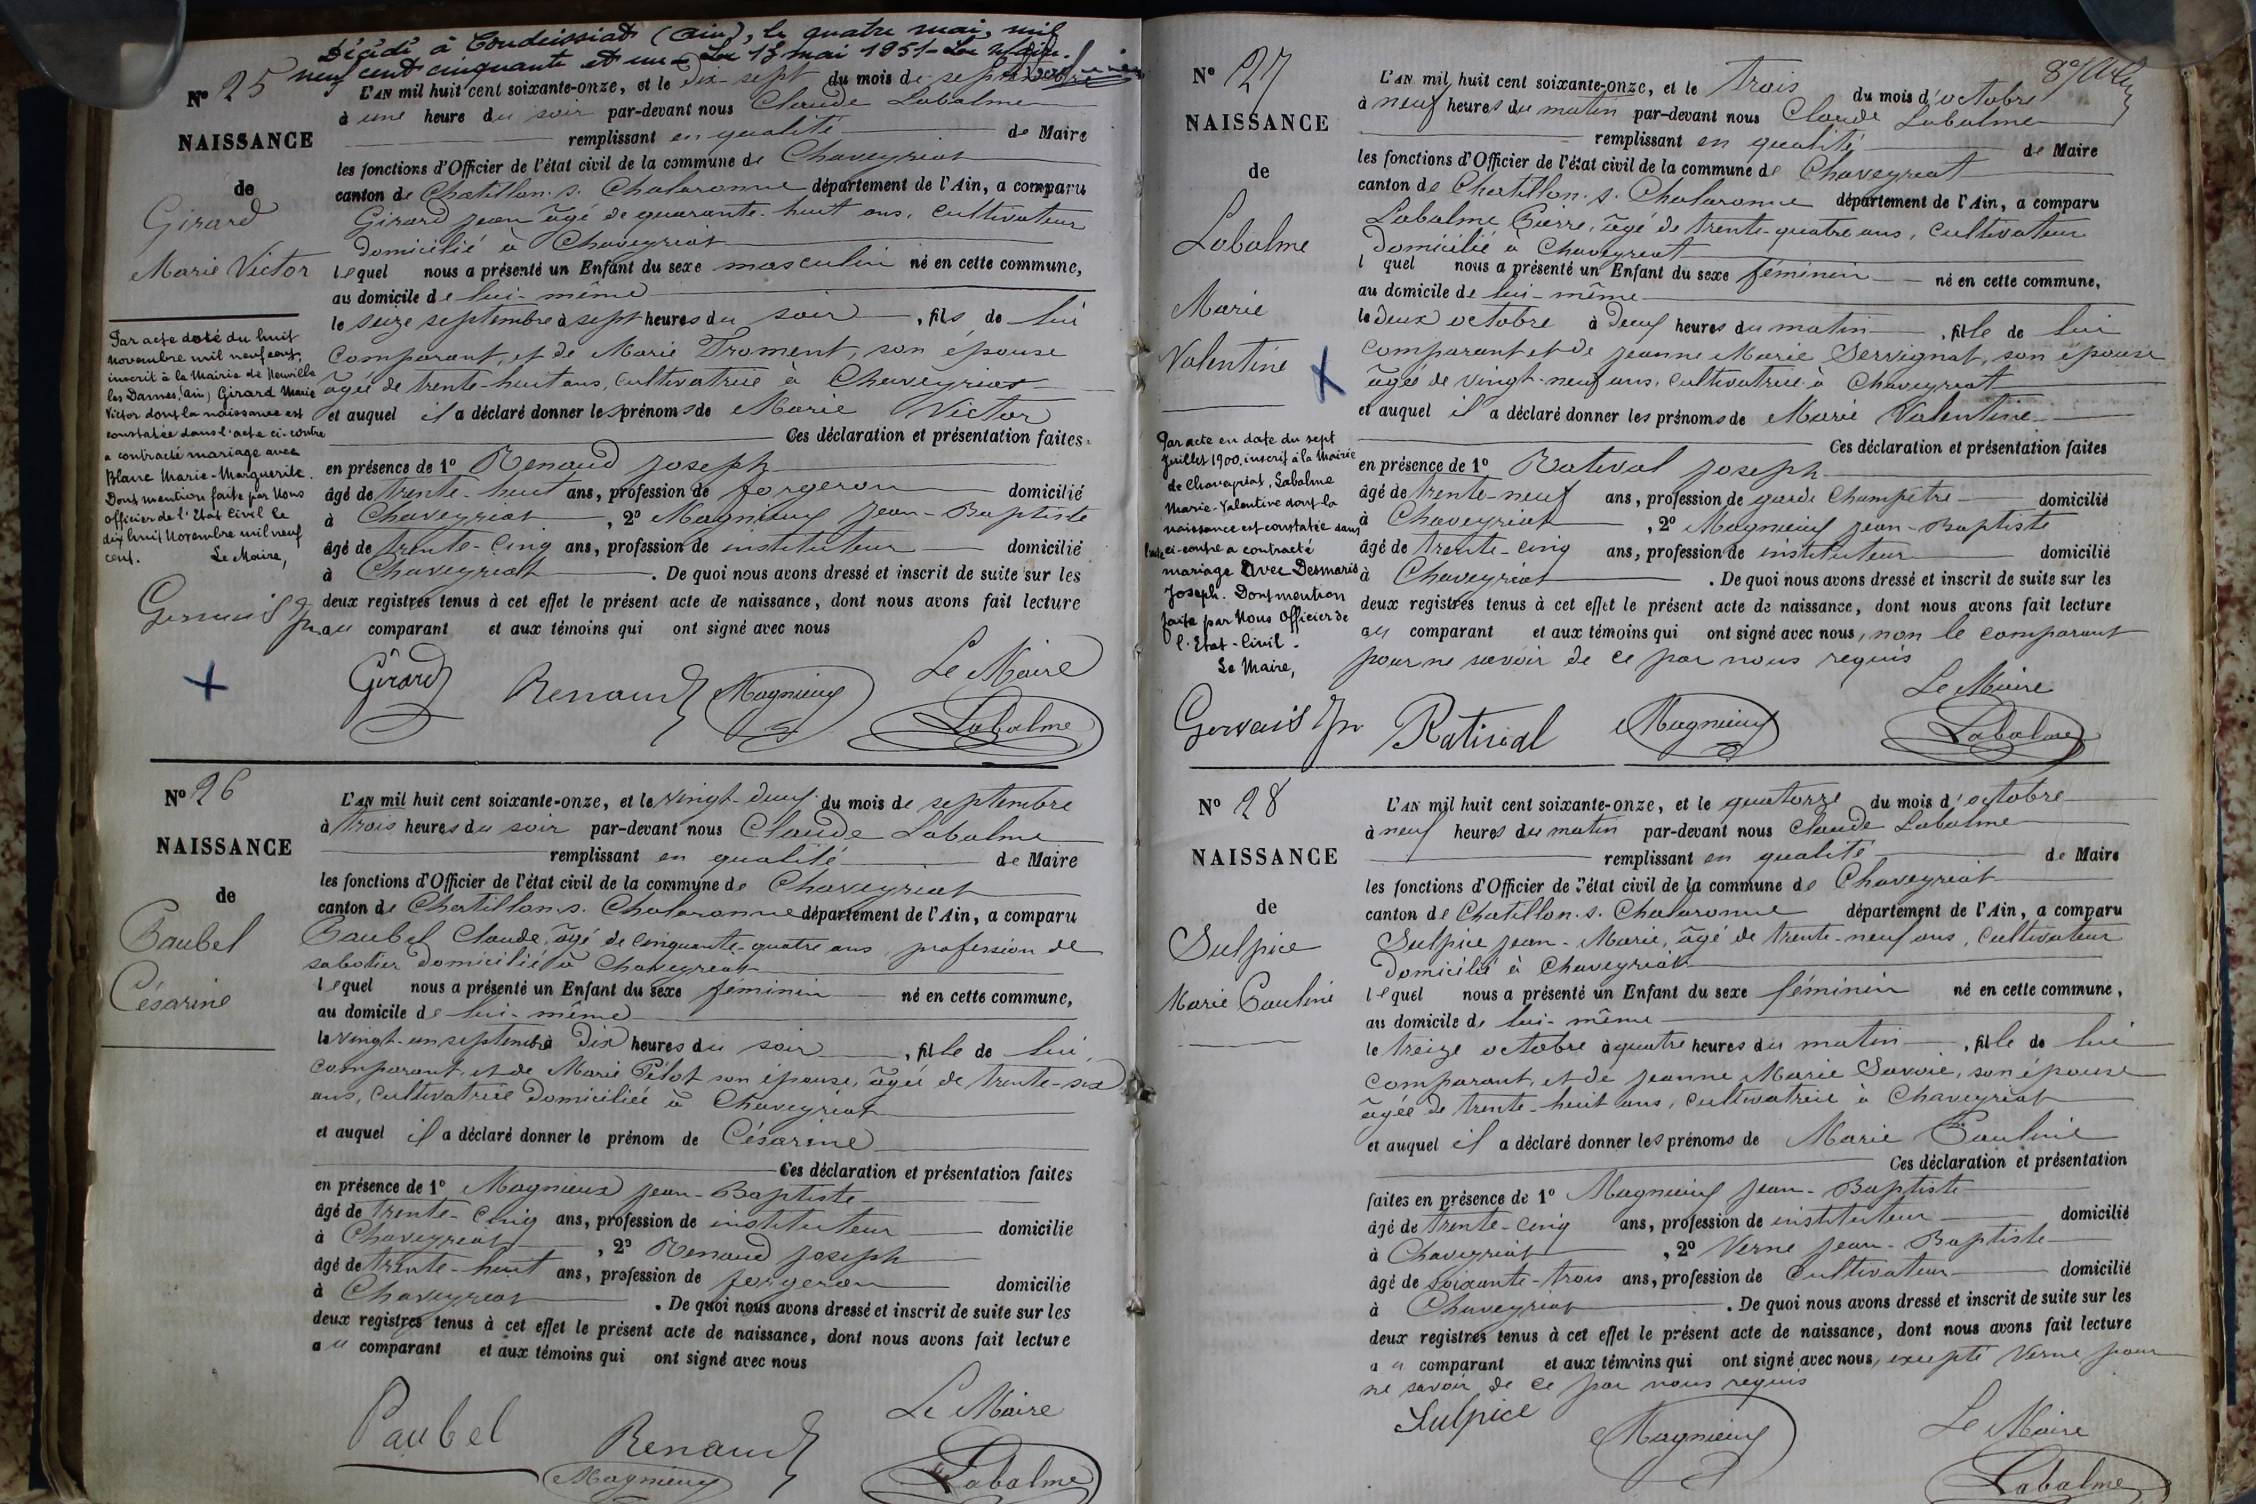 Décédé à Condeissiat (Ain), le quatre mai, mil
neuf cent cinquante et un - Le 13 mai 1951 - Le Maire.
N° 25
NAISSANCE
de
Girard
Marie Victor
Par acte daté du huit
novembre mil neuf cent,
inscrit à la Mairie de Neuville
les Dames (Ain) Girard Marie
Victor dont la naissance est
constatée dans l'acte ci-contre
a contracté mariage avec
Blanc Marie-Marguerite.
Dont mention faite par Nous
officier de l'Etat Civil le
dix huit Novembre mil neuf
cent. Le Maire,
Gervais Jn
L'AN mil huit cent soixante-onze, et le dix-sept du mois de septembre
à une heure du soir par-devant nous Claude Labalme
remplissant en qualité de Maire
les fonctions d'Officier de l'état civil de la commune de Chaveyriat
canton de Chatillon-s-Chalaronne département de l'Ain, a comparu
Girard Jean âgé de quarante-huit ans, cultivateur
domicilié à Chaveyriat
lequel nous a présenté un Enfant du sexe masculin né en cette commune,
au domicile de lui-même
le seize septembre à sept heures du soir, fils de lui
comparant, et de Marie Froment, son épouse
âgée de trente-huit ans, cultivatrice à Chaveyriat
et auquel il a déclaré donner les prénoms de Marie Victor
Ces déclaration et présentation faites
en présence de 1° Renaud Joseph
âgé de trente-huit ans, profession de forgeron domicilié
à Chaveyriat, 2° Magnieux Jean-Baptiste
âgé de trente-cinq ans, profession de instituteur domicilié
à Chaveyriat. De quoi nous avons dressé et inscrit de suite sur les
deux registres tenus à cet effet le présent acte de naissance, dont nous avons fait lecture
au comparant et aux témoins qui ont signé avec nous
Le Maire
Girard Renaud Magnieux Labalme
N° 26
NAISSANCE
de
Paubel
Césarine
L'AN mil huit cent soixante-onze, et le vingt-deux du mois de septembre
à trois heures du soir par-devant nous Claude Labalme
remplissant en qualité de Maire
les fonctions d'Officier de l'état civil de la commune de Chaveyriat
canton de Chatillon-s-Chalaronne département de l'Ain, a comparu
Paubel Claude, âgé de cinquante-quatre ans profession de
sabotier domicilié à Chaveyriat
lequel nous a présenté un Enfant du sexe féminin né en cette commune,
au domicile de lui-même
le vingt-un septembre à dix heures du soir, fille de lui,
comparant, et de Marie Pélot son épouse, âgée de trente-six
ans, cultivatrice domiciliée à Chaveyriat
et auquel il a déclaré donner le prénom de Césarine
Ces déclaration et présentation faites
en présence de 1° Magnieux Jean-Baptiste
âgé de trente-cinq ans, profession de instituteur domicilié
à Chaveyriat, 2° Renaud Joseph
âgé de trente-huit ans, profession de forgeron domicilié
à Chaveyriat. De quoi nous avons dressé et inscrit de suite sur les
deux registres tenus à cet effet le présent acte de naissance, dont nous avons fait lecture
au comparant et aux témoins qui ont signé avec nous
Le Maire
Paubel Renaud
Magnieux Labalme
N° 27
NAISSANCE
de
Labalme
Marie
Valentine
Par acte en date du sept
Juillet 1900, inscrit à la Mairie
de Chaveyriat, Labalme
Marie-Valentine dont la
naissance est constatée dans
l'acte ci-contre a contracté
mariage avec Desmaris
Joseph. Dont mention
faite par Nous Officier de
l'Etat-Civil.
Le Maire,
Gervais Jn
L'AN mil huit cent soixante-onze, et le trois du mois d'octobre
à neuf heures du matin par-devant nous Claude Labalme
remplissant en qualité de Maire
les fonctions d'Officier de l'état civil de la commune de Chaveyriat
canton de Chatillon-s-Chalaronne département de l'Ain, a comparu
Labalme Pierre, âgé de trente-quatre ans, cultivateur
domicilié à Chaveyriat
l quel nous a présenté un Enfant du sexe féminin né en cette commune,
au domicile de lui-même
le deux octobre à neuf heures du matin, fille de lui
comparant et de Jeanne Marie Servignat, son épouse
âgée de vingt-neuf ans, cultivatrice à Chaveyriat
et auquel il a déclaré donner les prénoms de Marie Valentine
Ces déclaration et présentation faites
en présence de 1° Rativat Joseph
âgé de trente-neuf ans, profession de garde champêtre domicilié
à Chaveyriat, 2° Magnieux Jean-Baptiste
âgé de trente-cinq ans, profession de instituteur domicilié
à Chaveyriat. De quoi nous avons dressé et inscrit de suite sur les
deux registres tenus à cet effet le présent acte de naissance, dont nous avons fait lecture
au comparant et aux témoins qui ont signé avec nous, non le comparant
pour ne savoir de ce par nous requis
Le Maire
Magnieux Labalme
N° 28
NAISSANCE
de
Sulpice
Marie Pauline
L'AN mil huit cent soixante-onze, et le quatorze du mois d'octobre
à neuf heures du matin par-devant nous Claude Labalme
remplissant en qualité de Maire
les fonctions d'Officier de l'état civil de la commune de Chaveyriat
canton de Chatillon-s-Chalaronne département de l'Ain, a comparu
Sulpice Jean-Marie, âgé de trente-neuf ans, cultivateur
domicilié à Chaveyriat
lequel nous a présenté un Enfant du sexe féminin né en cette commune,
au domicile de lui-même
le treize octobre à quatre heures du matin, fille de lui
comparant, et de Jeanne Marie Savoie, son épouse
âgée de trente-huit ans, cultivatrice à Chaveyriat
et auquel il a déclaré donner les prénoms de Marie Pauline
Ces déclaration et présentation
faites en présence de 1° Magnieux Jean-Baptiste
âgé de trente-cinq ans, profession de instituteur domicilié
à Chaveyriat, 2° Verne Jean-Baptiste
âgé de soixante-trois ans, profession de cultivateur domicilié
à Chaveyriat. De quoi nous avons dressé et inscrit de suite sur les
deux registres tenus à cet effet le présent acte de naissance, dont nous avons fait lecture
au comparant et aux témoins qui ont signé avec nous, excepté Verne pour
ne savoir de ce par nous requis
Sulpice Le Maire
Magnieux Labalme